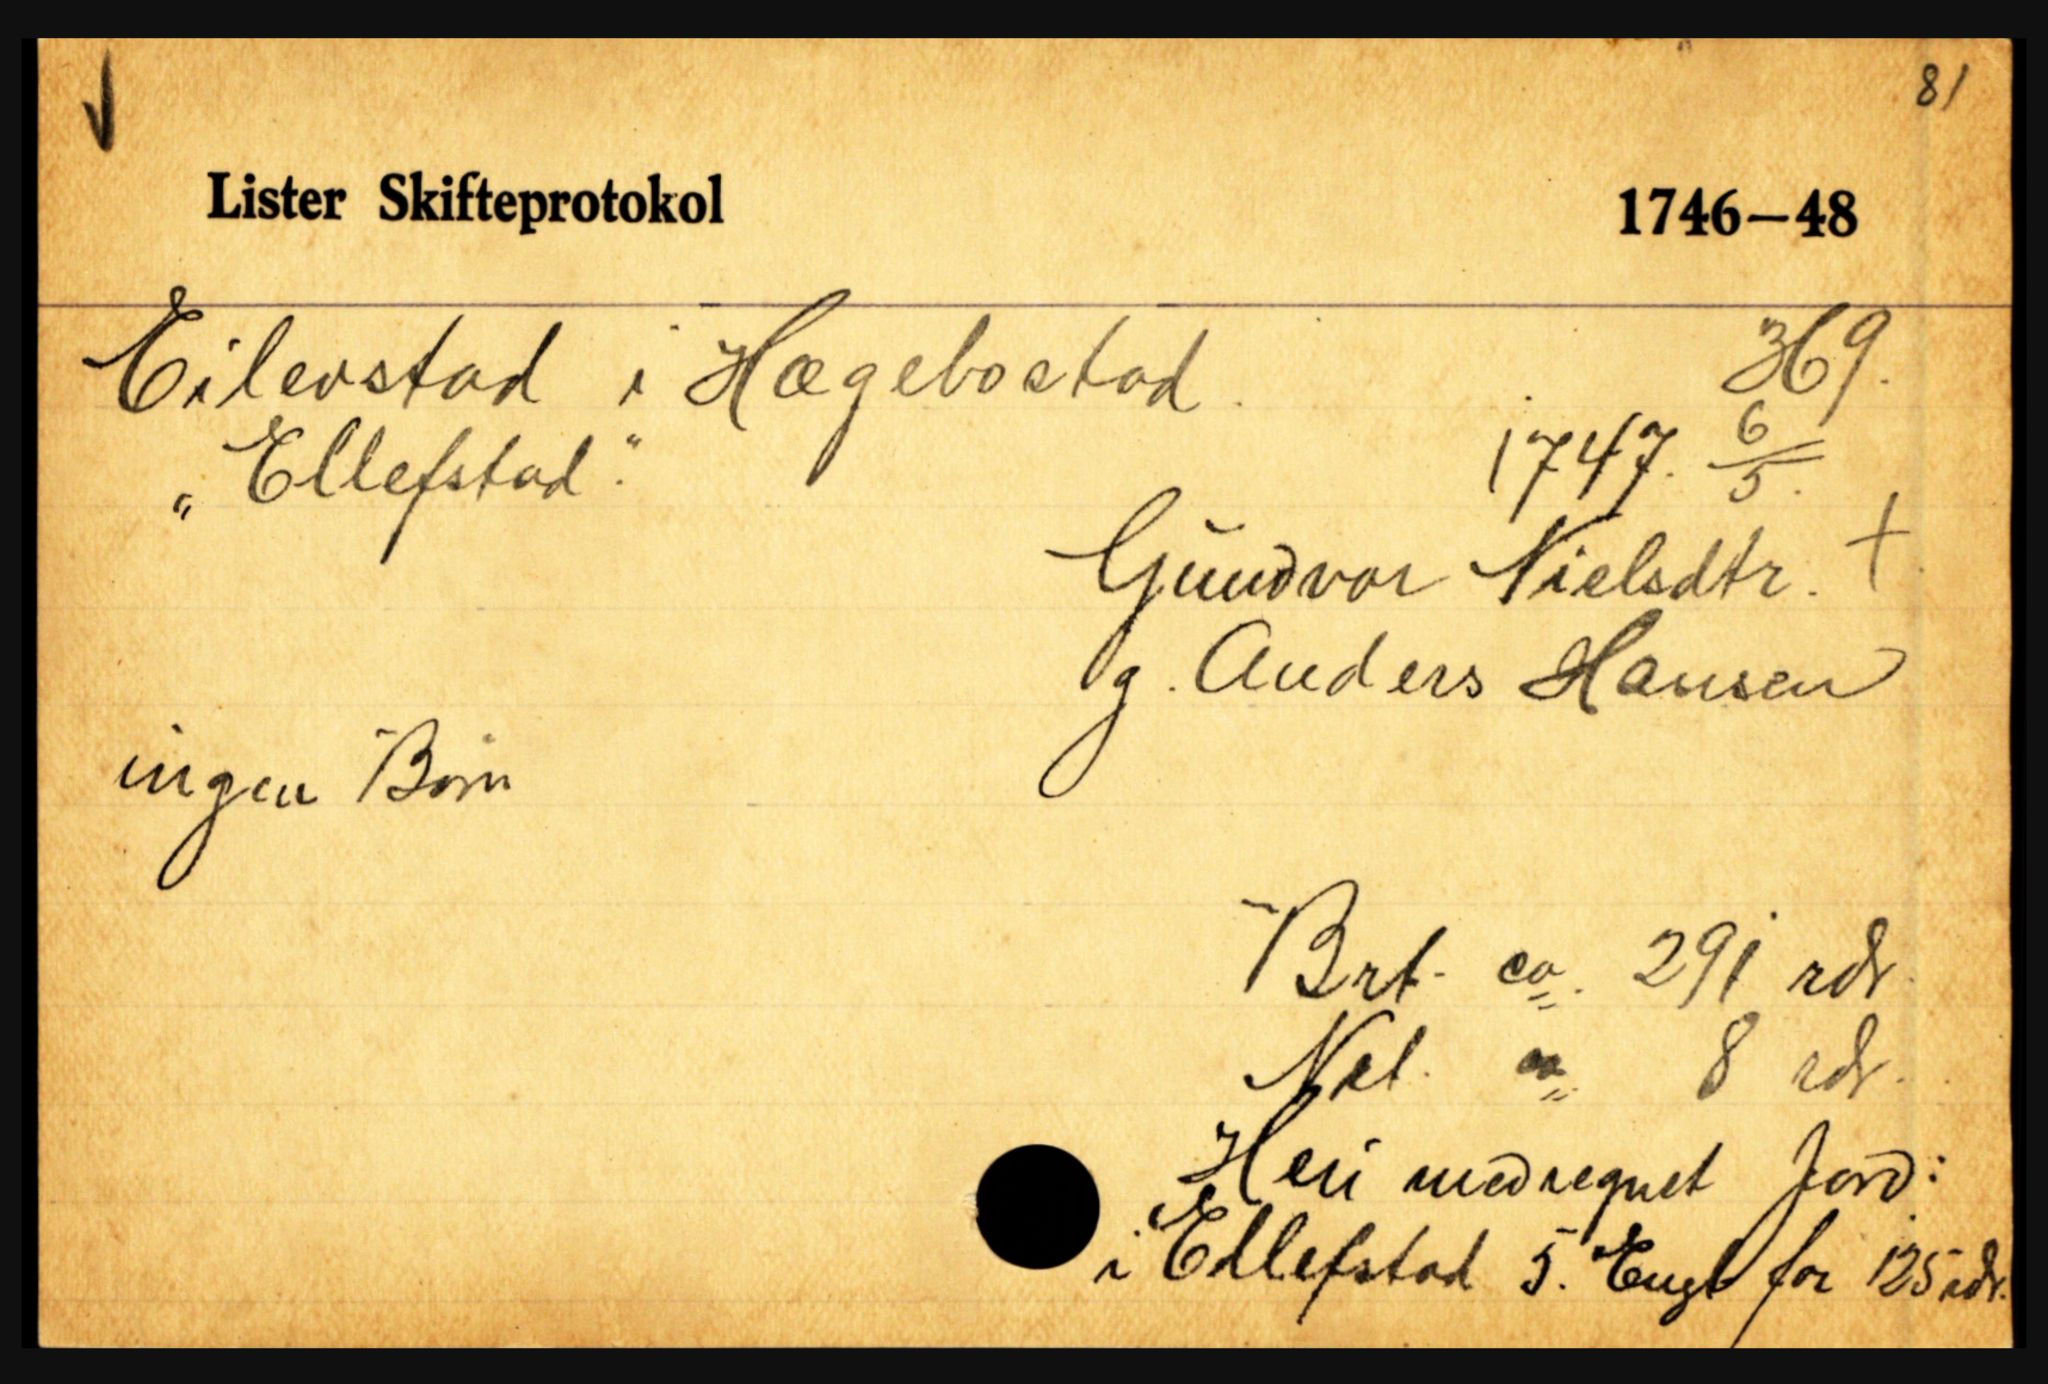 81
Lister Skifteprotokol 1746–48
Eilevstad i Hægebostad. 369.
„Ellefstad." 1747. 6/5.
Gŭndvor Nielsdtr. †.
g. Anders Hansen
ingen Børn
Brt. ca. 291 rdr.
Net. ca. 8 rdr.
Heri medregnet Jord:
i Ellefstad 5. Engl for 125 rdr.